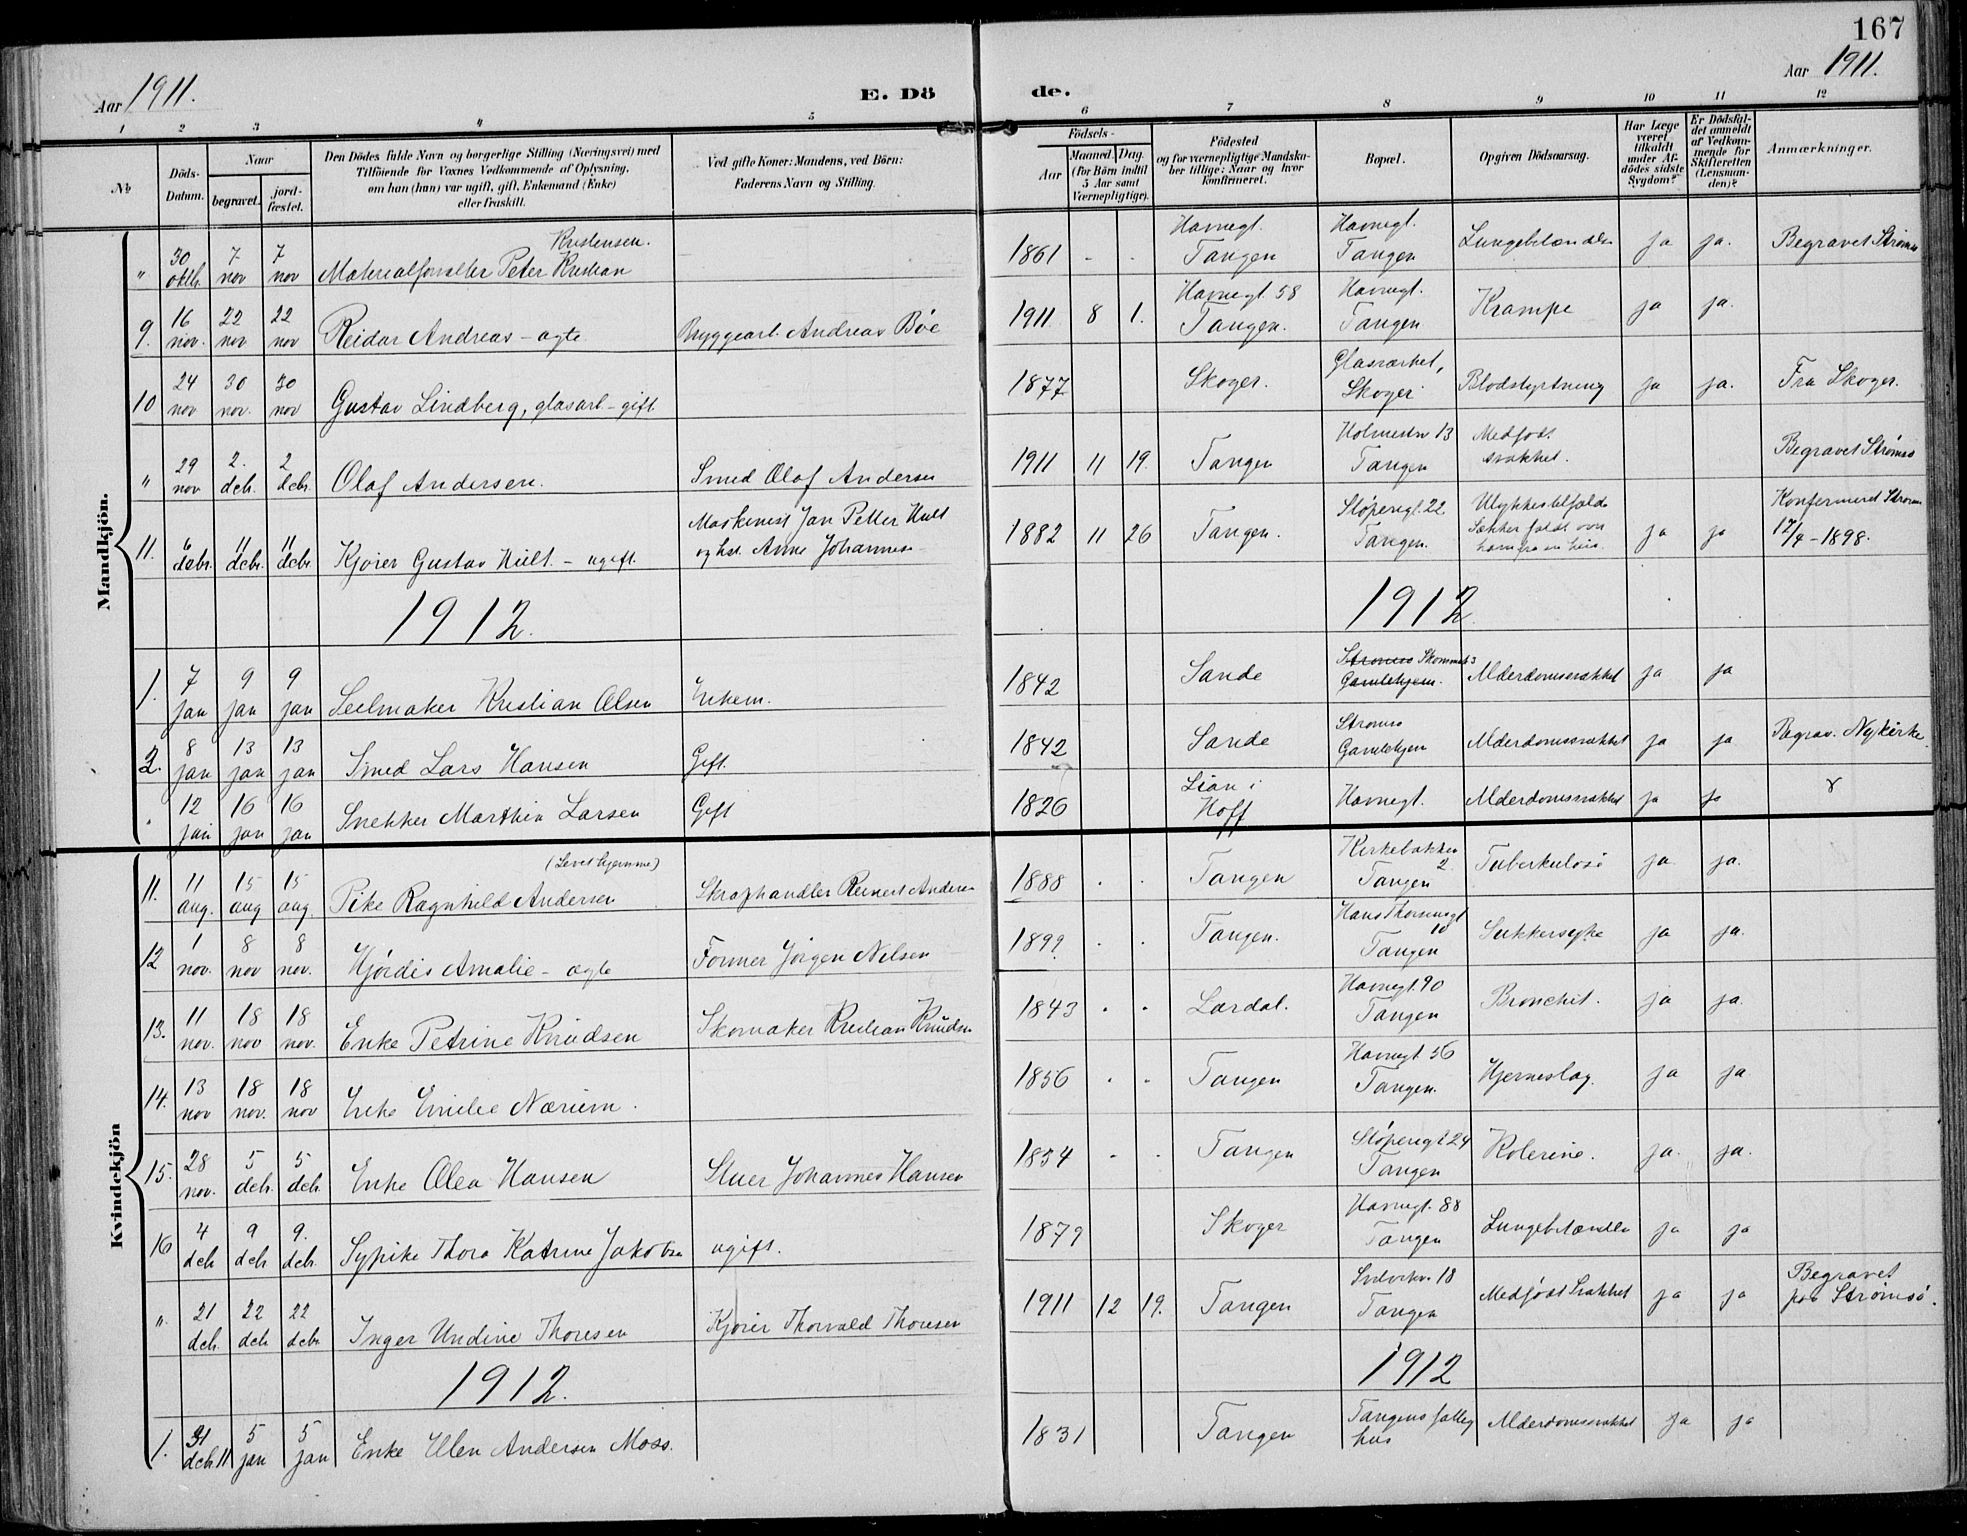 167
Aar 1911.
E. Dö de.
Aar 1911.
1 2 3 4 5 6 7 8 9 10 11 12
No
Döds-Datum.
Naar
begravet.
jord-fæstet.
Den Dödes fulde Navn og borgerlige Stilling (Næringsvei) med
Tilföiende for Voxnes Vedkommende af Oplysning,
om han (hun) var ugift, gift, Enkemand (Enke)
eller fraskilt.
Ved gifte Koner: Mandens, ved Börn:
Faderens Navn og Stilling.
Födsels-
Aar
Maaned. Dag.
(for Börn indtil
5 Aar samt
Værnepligtige).
Födested
og for værnepligtige Mandska-
ber tillige: Naar og hvor
konfirmeret.
Bopæl.
Opgiven Dödsaarsag.
Har Læge
været
tilkaldt
under Af-
dödes sidste
Sygdom?
Er Dödsfal-
det anmeldt
af Vedkom-
mende for
Skifteretten
(Lensman-
den)?
Anmærkninger.
Mandkjön.
" 30 oktbr. 7 nov 7 nov Materialforvalter Peter Kristian Kristensen. 1861 - - Havnegt. Tangen Havnegt. Tangen Lungebetændelse ja ja. Begravet Strømsø
9. 16 nov. 22 nov 22 nov Reidar Andreas - ægte Bryggearb. Andreas Bøe 1911 8 1. Havnegt. 58 Tangen. Havnegt. Tangen Krampe ja ja.
10 24 nov 30 nov. 30 nov Gustav Lindberg, glasarb. - gift. 1877 Skoger. Glasværket, Skoger Blodstyrtning ja ja. Fra Skoger.
" 29 nov 2. debr. 2 debr. Olaf Andersen. Smed Olaf Andersen 1911 11 19. Tangen Holmestr 13 Tangen Medfødt svakhet. Begravet Strømsø
11. 6 debr. 11 debr. 11 debr. Kjører Gustav Hult. - ugift. Maskinist Jan Petter Hult og hst. Anne Johannes- 1882 11 26 Tangen. Støperigt. 22 Tangen. Ulykkestilfælde Sækker faldt over ham fra en heis. ja ja Konfirmeret Strømsø 17/4 - 1898.
1912. 1912.
1. 7 jan 9 jan 9 jan Seilmaker Kristian Olsen Enkem. 1842 Sande Strømsø Gamlehjem. Alderdomssvakhet ja ja
2. 8 jan 13 jan 13 jan Smed Lars Hansen Gift. 1842 Sande Strømsø Gamlehjem Alderdomssvakhet ja ja Begrav. Nykirke.
. 12 jan 16 jan 16 jan Snekker Marthin Larsen Gift 1826 Lian i Hoff Havnegt. Alderdomssvakhet ja ja
Kvindekjön
11. 11 aug. 15 aug 15 aug. Pike Ragnhild Andersen (Levet hjemme) Skraphandler Reinert Andersen 1888 . . Tangen Kirkebakken 2 Tangen Tuberkulose ja. ja.
12 1 nov. 8 nov 8 nov. Hjørdis Amalie - ægte Former Jørgen Nilsen 1899. . . Tangen. Hans Thornesgt 10 Tangen Sukkersyke ja ja.
13. 11 nov. 18 nov 18 nov. Enke Petrine Knudsen Skomaker Kristian Knudsen 1843 . . Lardal. Havnegt. 90 Tangen Bronchit. ja ja.
14. 13 nov 18 nov. 18 nov Enke Emilie Nærum. 1856 . . Tangen Havnegt 56 Tangen. Hjerneslag. ja ja.
15. 28 nov. 5 debr. 5 debr. Enke Olea Hansen Stuer Johannes Hansen 1834 - . Tangen Støperigt. 24 Tangen Kolerine. ja. ja.
16 4 deb 9 debr 9. debr. Sypike Thora Katrine Jakobsen ugift. 1879 Skoger Havnegt. 88 Tangen Lungebetændelse ja ja
". 21 deb. 22 deb 22 debr Inger Undine Thoresen Kjører Thorvald Thoresen 1911 12 19. Tangen 18 Tangen Medfødt Svakhet ja ja Begravet paa Strømsø.
1912. 1912
1. 31 debr. 11 5 jan 5 jan Enke Ellen Andersen Moss. 1831 Tangen Tangens fattighus Alderdomssvakhet ja ja